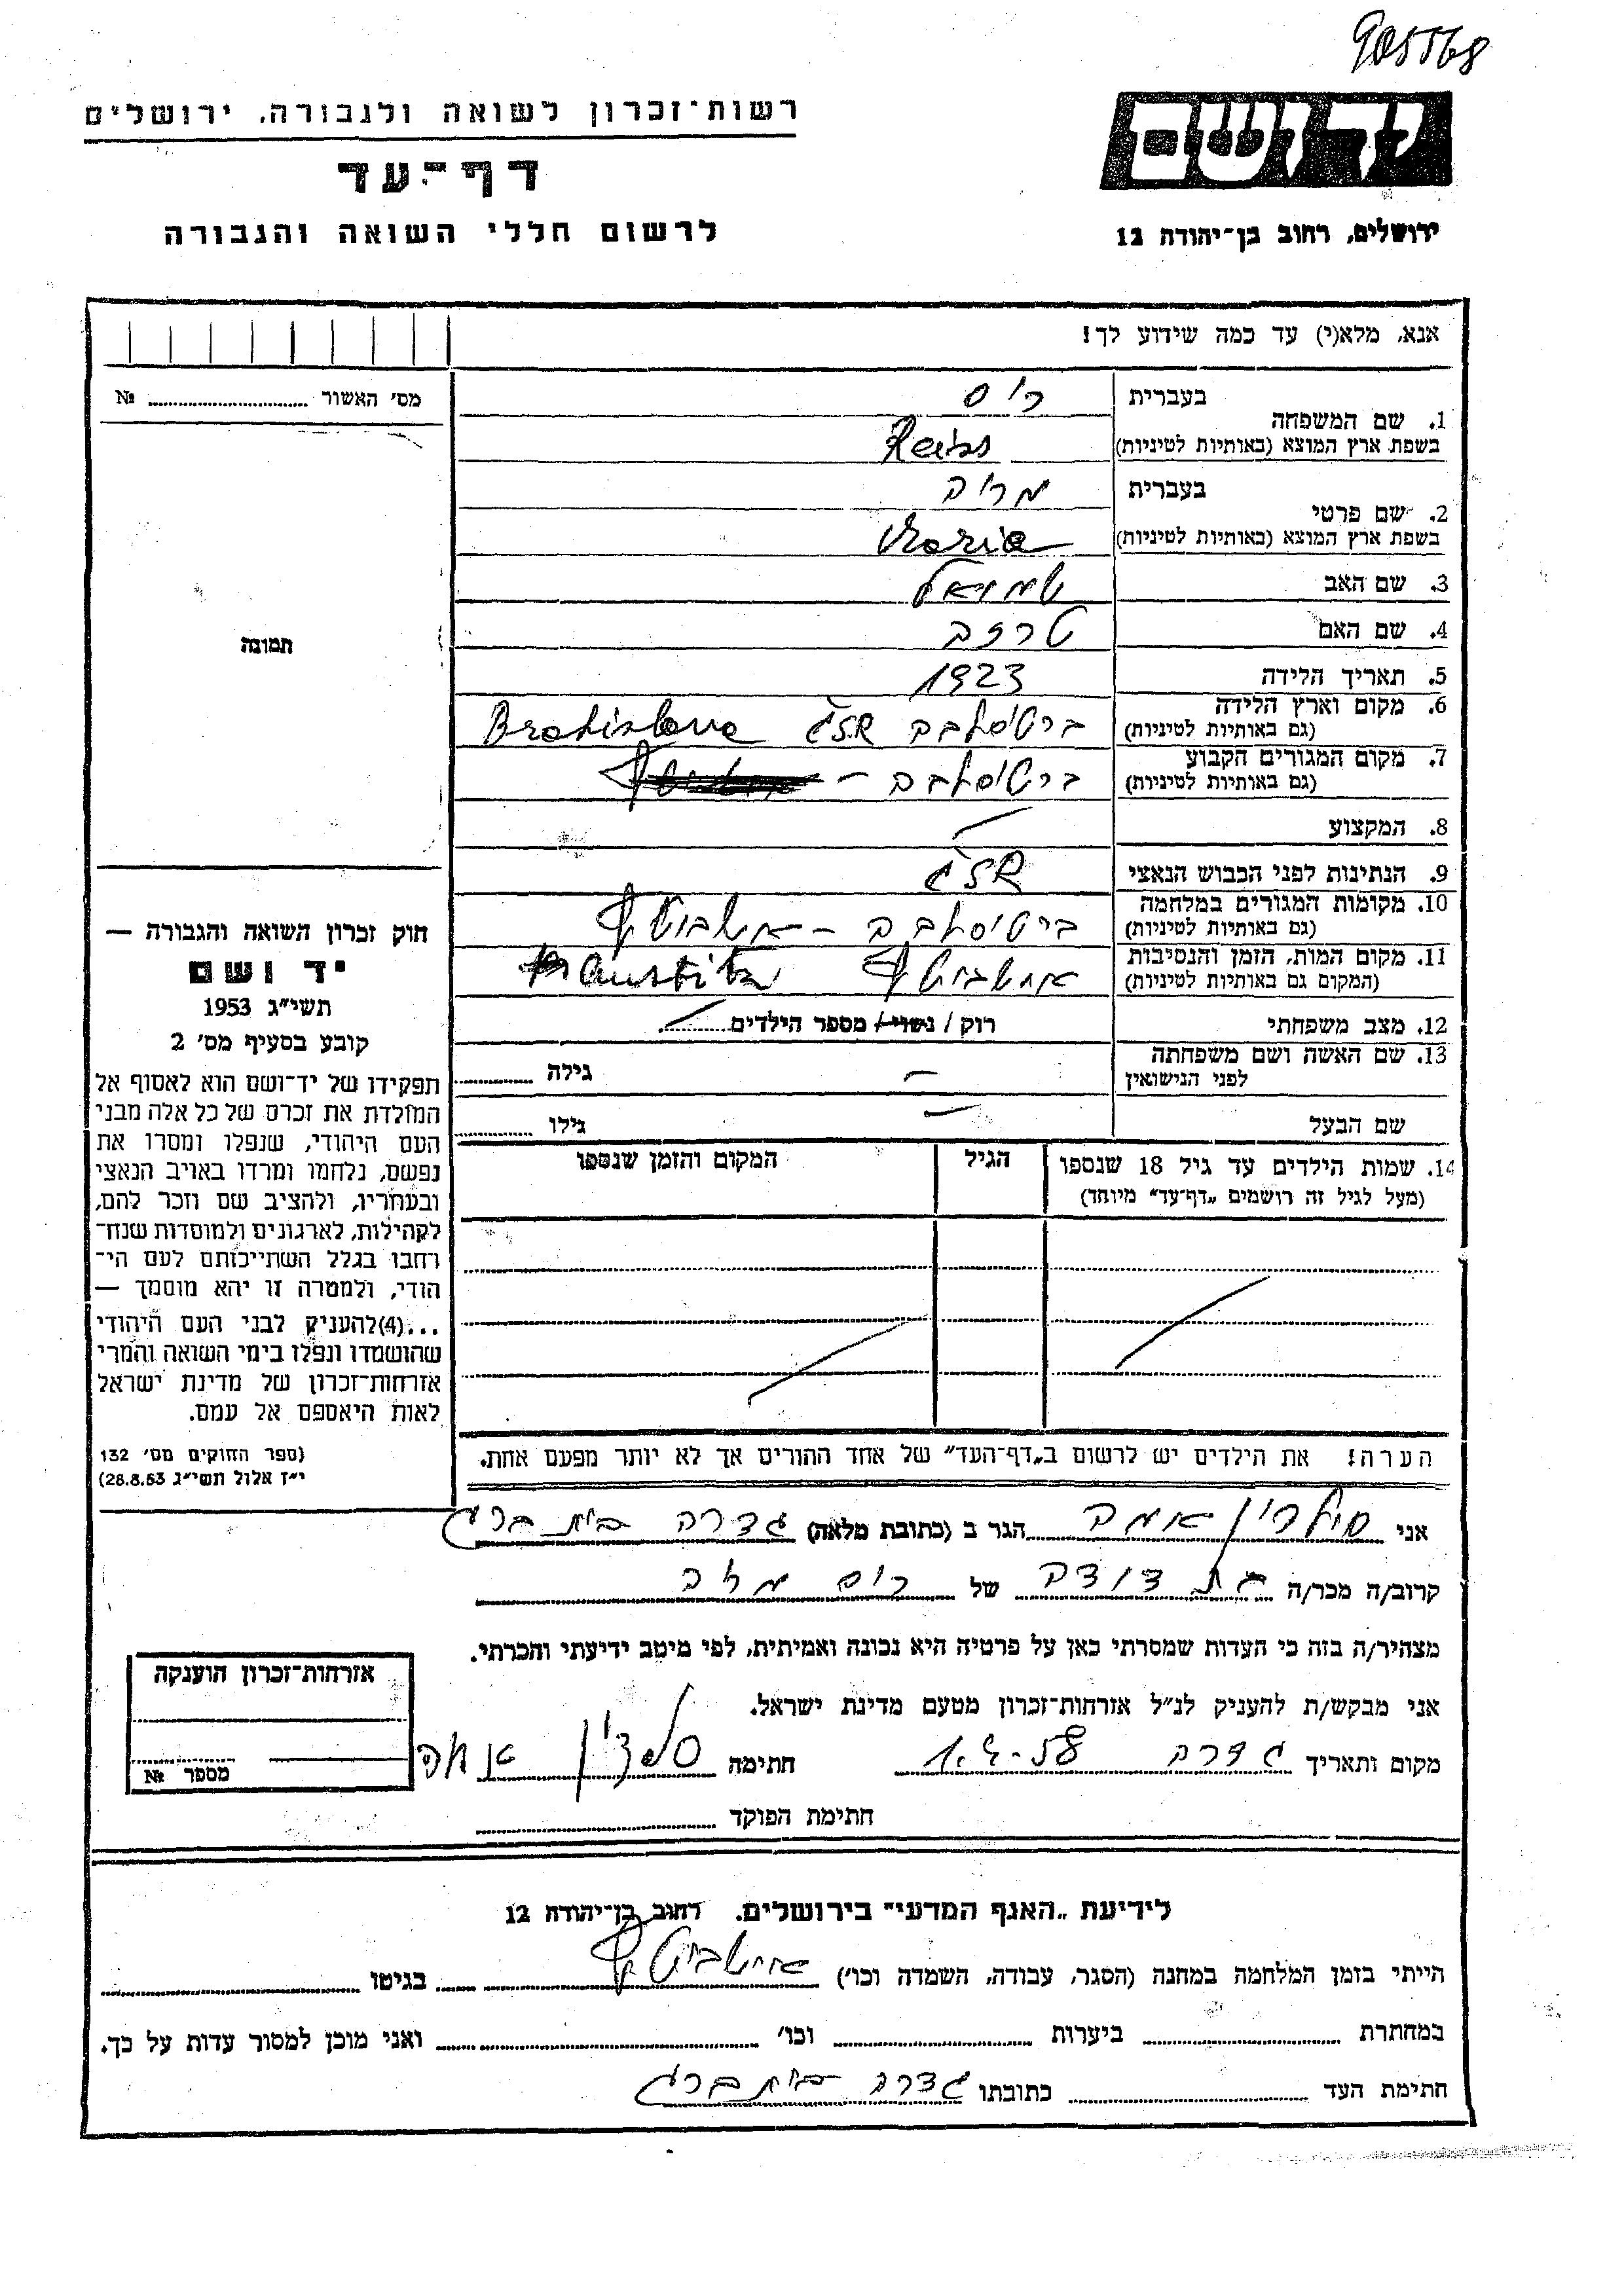 905568
רשות־זכרון לשואה ולגבורה, ירושלים
ידושם
דף־עד
לרשום חללי השואה והגבורה
ירושלים, רחוב בן־יהודה 12
אנא, מלא(י) עד כמה שידוע לך!
מס' האשור № 
1. שם המשפחה בעברית ריס
בשפת ארץ המוצא (באותיות לטיניות) Reiss
2. שם פרטי בעברית מריה
בשפת ארץ המוצא (באותיות לטיניות) Maria
3. שם האב שמואל
4. שם האם טרזה
תמונה
5. תאריך הלידה 1923
6. מקום וארץ הלידה (גם באותיות לטיניות) ברטיסלבה ČSR Bratislava
7. מקום המגורים הקבוע (גם באותיות לטיניות) ברטיסלבה –
8. המקצוע
9. הנתינות לפני הכבוש הנאצי ČSR
10. מקומות המגורים במלחמה (גם באותיות לטיניות) ברטיסלבה – אושביטץ
11. מקום המות, הזמן והנסיבות (המקום גם באותיות לטיניות) אושביטץ
12. מצב משפחתי רוק / נשוי / מספר הילדים
13. שם האשה ושם משפחתה לפני הנישואין – גילה
שם הבעל – גילו
14. שמות הילדים עד גיל 18 שנספו
(מעל לגיל זה רושמים „דף־עד" מיוחד)
הגיל
המקום והזמן שנספו
הערה! את הילדים יש לרשום ב„דף־העד" של אחד ההורים אך לא יותר מפעם אחת.
חוק זכרון השואה והגבורה —
יד ושם
תשי"ג 1953
קובע בסעיף מס' 2
תפקידו של יד־ושם הוא לאסוף אל
המולדת את זכרם של כל אלה מבני
העם היהודי, שנפלו ומסרו את
נפשם, נלחמו ומרדו באויב הנאצי
ובעוזריו, ולהציב שם וזכר להם,
לקהילות, לארגונים ולמוסדות שנח־
רבו בגלל השתייכותם לעם הי־
הודי, ולמטרה זו יהא מוסמך —
...(4)להעניק לבני העם היהודי
שהושמדו ונפלו בימי השואה והמרי
אזרחות־זכרון של מדינת ישראל
לאות היאספם אל עמם.
(ספר החוקים מס' 132
י"ז אלול תשי"ג 28.8.53)
אני אמה הגר ב (כתובת מלאה) גדרה בית
קרוב/ה מכר/ה בת דודה של ריס
מצהיר/ה בזה כי העדות שמסרתי כאן על פרטיה היא נכונה ואמיתית, לפי מיטב ידיעתי והכרתי.
אני מבקש/ת להעניק לנ"ל אזרחות־זכרון מטעם מדינת ישראל.
מקום ותאריך גדרה חתימה אמה
חתימת הפוקד
אזרחות־זכרון הוענקה
מספר №
לידיעת „האגף המדעי" בירושלים. רחוב בן־יהודה 12
הייתי בזמן המלחמה במחנה (הסגר, עבודה, השמדה וכו') אושביטץ בגיטו
במחתרת ביערות וכו' ואני מוכן למסור עדות על כך.
חתימת העד כתובתו גדרה בית